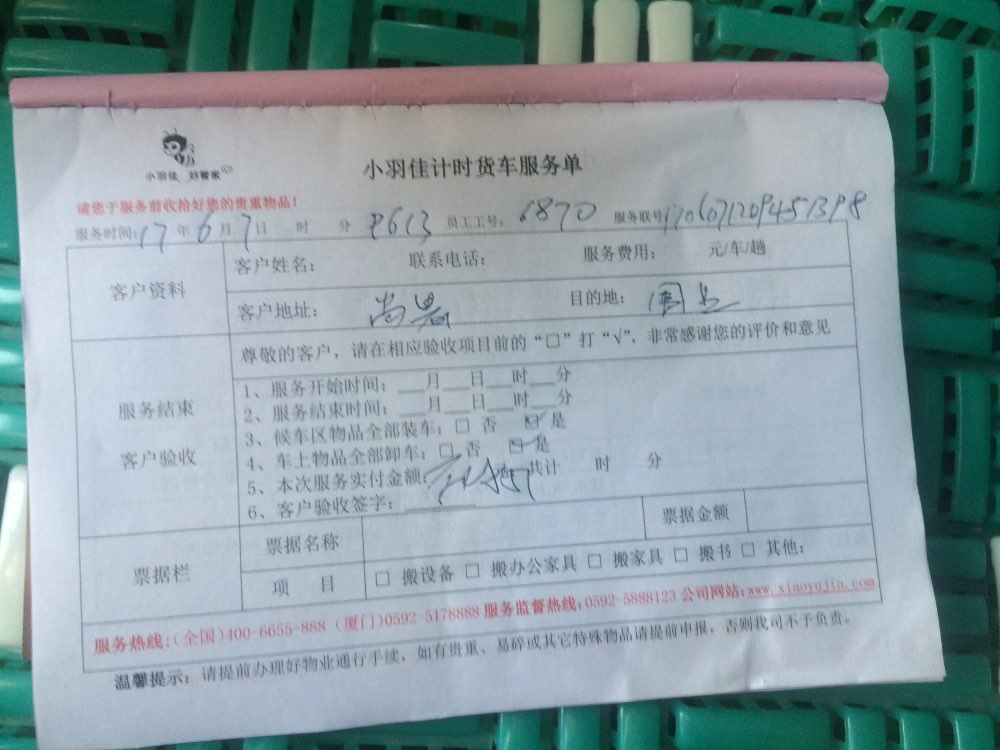 小羽佳 好管家
小羽佳计时货车服务单
请您于服务前收拾好您的贵重物品!
服务时间:17年6月7日 时 分 P613 员工工号: 6870 服务联号
客户资料
客户姓名: 联系电话: 服务费用: 元/车/趟
客户地址: 尚暑 目的地:
尊敬的客户,请在相应验收项目前的“□”打“√”,非常感谢您的评价和意见
服务结束
客户验收
1、服务开始时间:___月___日___时___分
2、服务结束时间:___月___日___时___分
3、候车区物品全部装车:□ 否 ☑ 是
4、车上物品全部卸车:□ 否 ☑ 是
5、本次服务实付金额: 共计 时 分
6、客户验收签字:
票据栏
票据名称 票据金额
项 目 □ 搬设备 □ 搬办公家具 □ 搬家具 □ 搬书 □ 其他:
服务热线:(全国)400-6655-888 (厦门)0592-5178888 服务监督热线:0592-5888123 公司网站:www.xiaoyujia.com
温馨提示:请提前办理好物业通行手续,如有贵重、易碎或其它特殊物品请提前申报,否则我司不予负责。